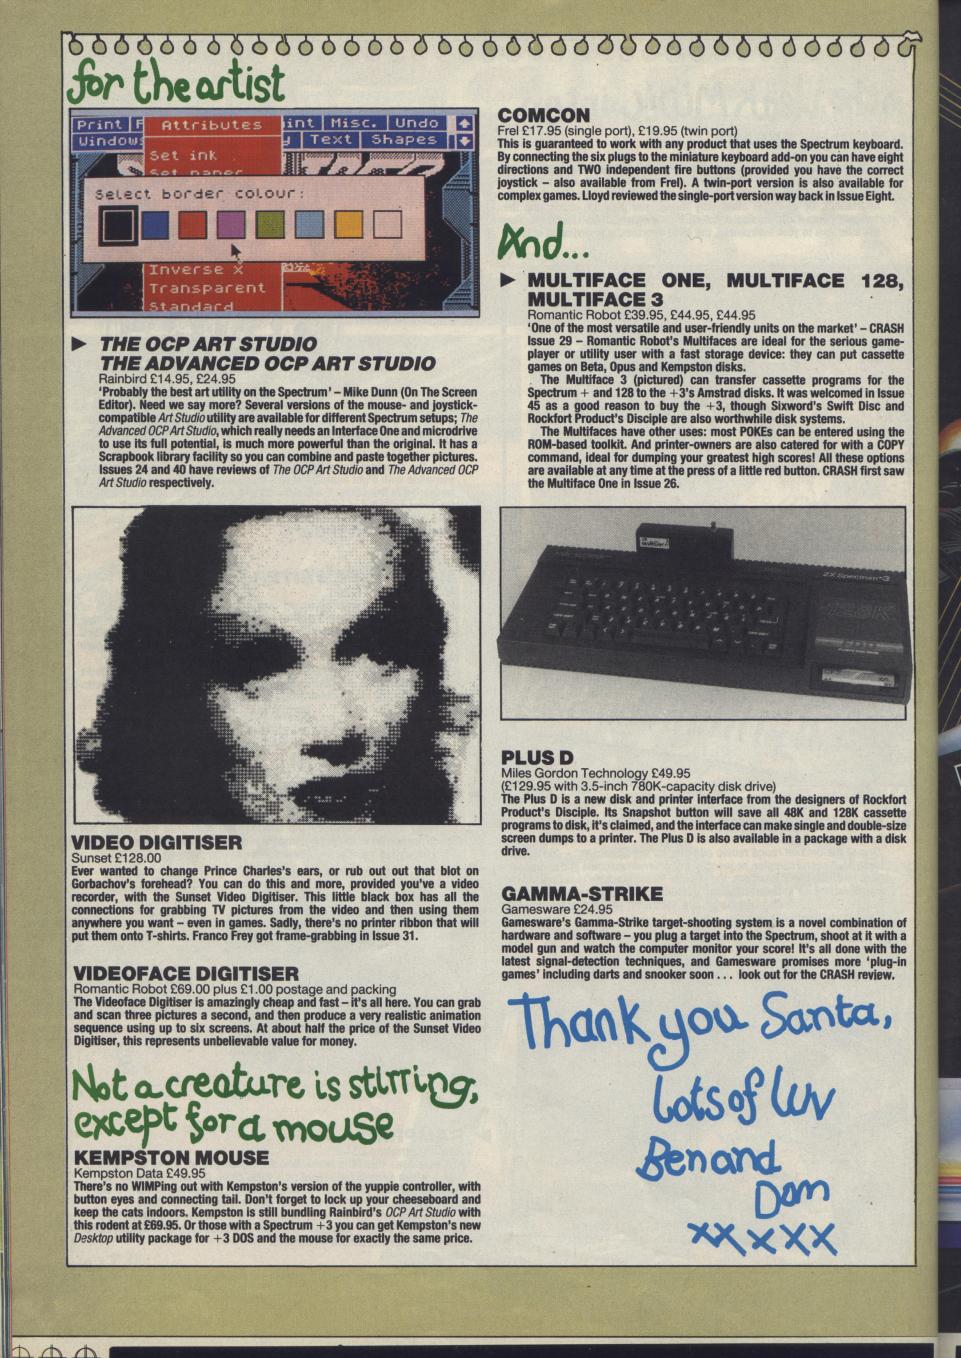 for the artist
Print
Attributes
Misc. Undo
Text Shapes
Set ink
Set paper
Select border colour:
Inverse X
Transparent
Standard
► THE OCP ART STUDIO
THE ADVANCED OCP ART STUDIO
Rainbird £14.95, £24.95
'Probably the best art utility on the Spectrum' – Mike Dunn (On The Screen
Editor). Need we say more? Several versions of the mouse- and joystick-
compatible Art Studio utility are available for different Spectrum setups; The
Advanced OCP Art Studio, which really needs an Interface One and microdrive
to use its full potential, is much more powerful than the original. It has a
Scrapbook library facility so you can combine and paste together pictures.
Issues 24 and 40 have reviews of The OCP Art Studio and The Advanced OCP
Art Studio respectively.
VIDEO DIGITISER
Sunset £128.00
Ever wanted to change Prince Charles's ears, or rub out out that blot on
Gorbachov's forehead? You can do this and more, provided you've a video
recorder, with the Sunset Video Digitiser. This little black box has all the
connections for grabbing TV pictures from the video and then using them
anywhere you want – even in games. Sadly, there's no printer ribbon that will
put them onto T-shirts. Franco Frey got frame-grabbing in Issue 31.
VIDEOFACE DIGITISER
Romantic Robot £69.00 plus £1.00 postage and packing
The Videoface Digitiser is amazingly cheap and fast – it's all here. You can grab
and scan three pictures a second, and then produce a very realistic animation
sequence using up to six screens. At about half the price of the Sunset Video
Digitiser, this represents unbelievable value for money.
Not a creature is stirring,
except for a mouse
KEMPSTON MOUSE
Kempston Data £49.95
There's no WIMPing out with Kempston's version of the yuppie controller, with
button eyes and connecting tail. Don't forget to lock up your cheeseboard and
keep the cats indoors. Kempston is still bundling Rainbird's OCP Art Studio with
this rodent at £69.95. Or those with a Spectrum +3 you can get Kempston's new
Desktop utility package for +3 DOS and the mouse for exactly the same price.
COMCON
Frel £17.95 (single port), £19.95 (twin port)
This is guaranteed to work with any product that uses the Spectrum keyboard.
By connecting the six plugs to the miniature keyboard add-on you can have eight
directions and TWO independent fire buttons (provided you have the correct
joystick – also available from Frel). A twin-port version is also available for
complex games. Lloyd reviewed the single-port version way back in Issue Eight.
And...
► MULTIFACE ONE, MULTIFACE 128,
MULTIFACE 3
Romantic Robot £39.95, £44.95, £44.95
'One of the most versatile and user-friendly units on the market' – CRASH
Issue 29 – Romantic Robot's Multifaces are ideal for the serious game-
player or utility user with a fast storage device: they can put cassette
games on Beta, Opus and Kempston disks.
The Multiface 3 (pictured) can transfer cassette programs for the
Spectrum + and 128 to the +3's Amstrad disks. It was welcomed in Issue
45 as a good reason to buy the +3, though Sixword's Swift Disc and
Rockfort Product's Disciple are also worthwhile disk systems.
The Multifaces have other uses: most POKEs can be entered using the
ROM-based toolkit. And printer-owners are also catered for with a COPY
command, ideal for dumping your greatest high scores! All these options
are available at any time at the press of a little red button. CRASH first saw
the Multiface One in Issue 26.
ZX Spectrum+3
PLUS D
Miles Gordon Technology £49.95
(£129.95 with 3.5-inch 780K-capacity disk drive)
The Plus D is a new disk and printer interface from the designers of Rockfort
Product's Disciple. Its Snapshot button will save all 48K and 128K cassette
programs to disk, it's claimed, and the interface can make single and double-size
screen dumps to a printer. The Plus D is also available in a package with a disk
drive.
GAMMA-STRIKE
Gamesware £24.95
Gamesware's Gamma-Strike target-shooting system is a novel combination of
hardware and software – you plug a target into the Spectrum, shoot at it with a
model gun and watch the computer monitor your score! It's all done with the
latest signal-detection techniques, and Gamesware promises more 'plug-in
games' including darts and snooker soon . . . look out for the CRASH review.
Thank you Santa,
Lots of luv
Ben and
Dom
xxxxx